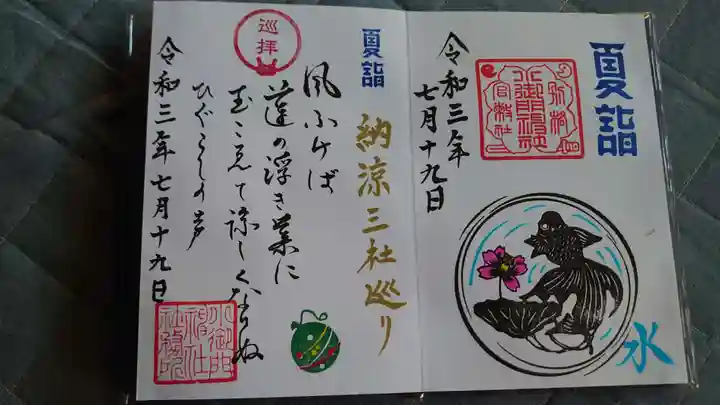 夏詣
令和三年
七月十九日
水
夏詣
納涼三社巡り
巡拝
風ふけば
蓮の浮き葉に
玉こえて涼しくなりぬ
ひぐらしの声
令和三年七月十九日